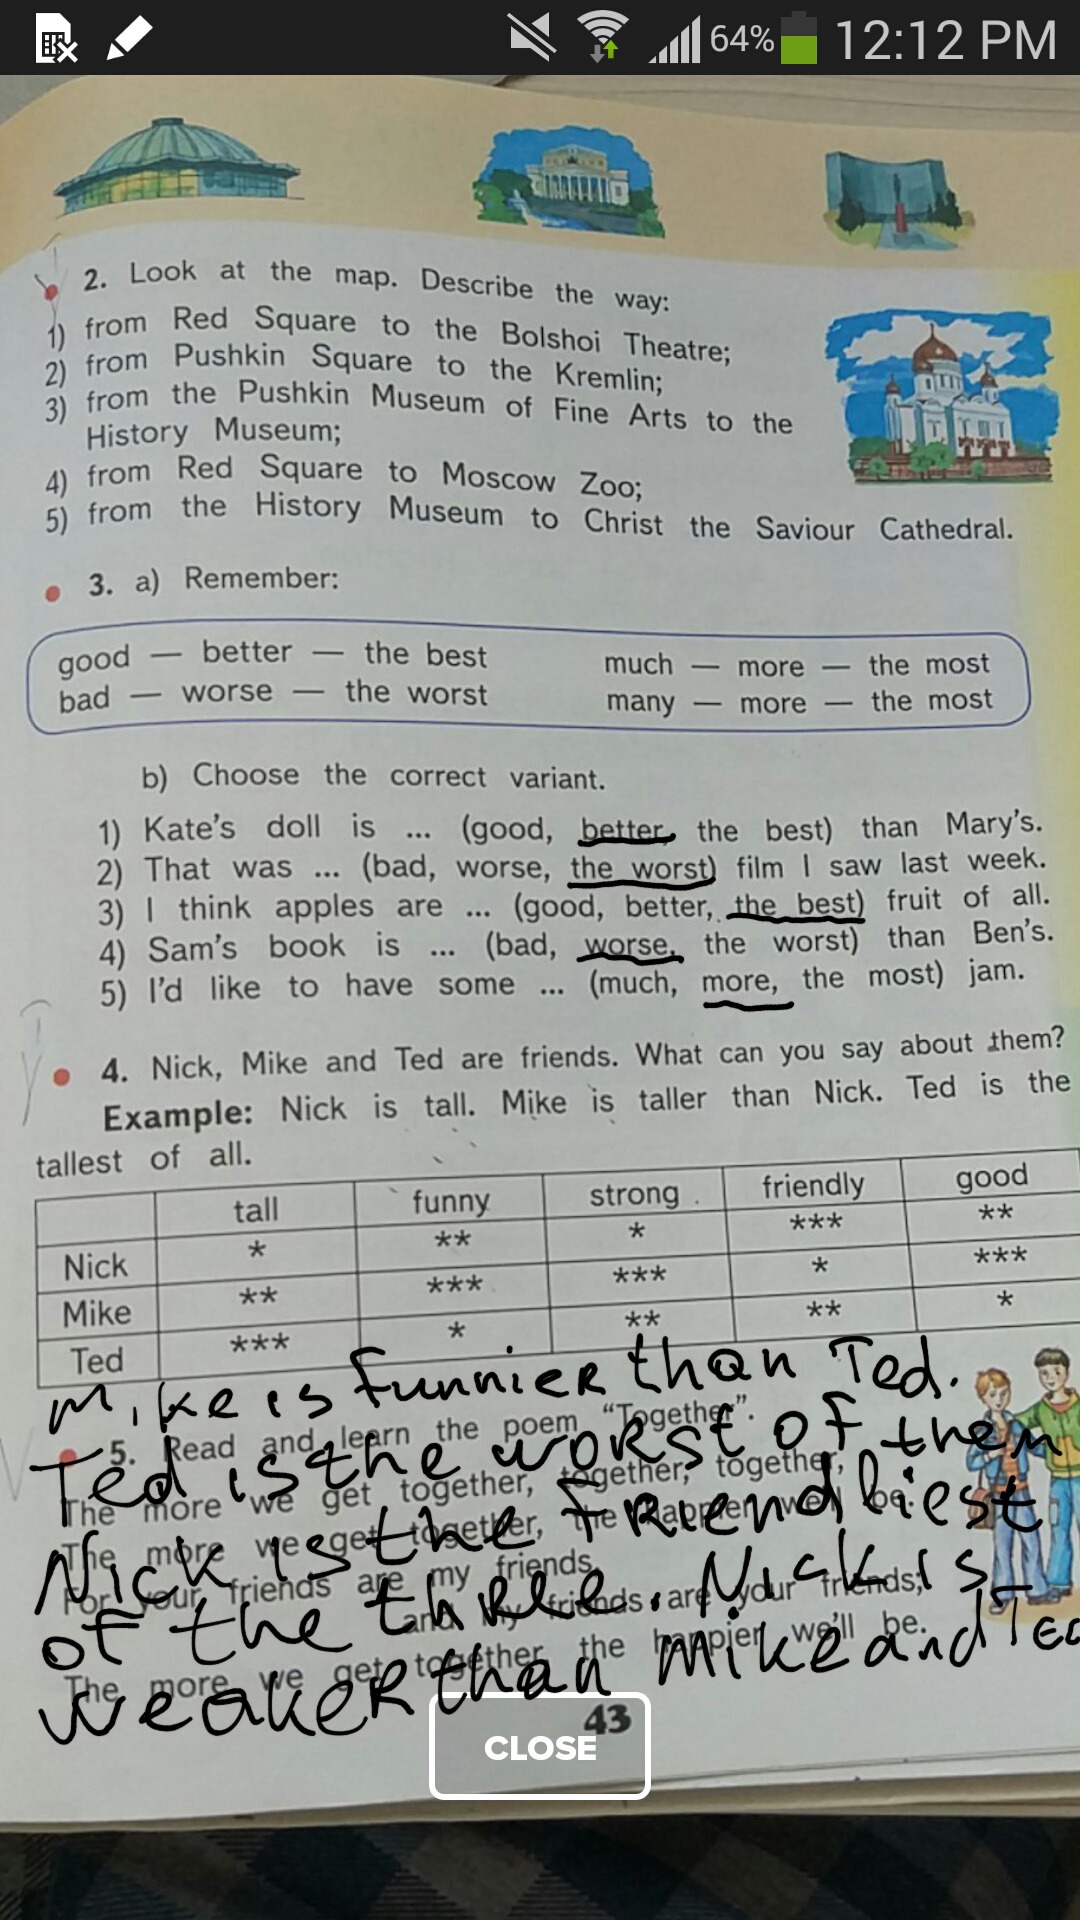 64% 12:12 PM
2. Look at the map. Describe the way:
1) from Red Square to the Bolshoi Theatre;
2) from Pushkin Square to the Kremlin;
3) from the Pushkin Museum of Fine Arts to the
History Museum;
4) from Red Square to Moscow Zoo;
5) from the History Museum to Christ the Saviour Cathedral.
3. a) Remember:
good — better — the best much — more — the most
bad — worse — the worst many — more — the most
b) Choose the correct variant.
1) Kate's doll is ... (good, better, the best) than Mary's.
2) That was ... (bad, worse, the worst) film I saw last week.
3) I think apples are ... (good, better, the best) fruit of all.
4) Sam's book is ... (bad, worse, the worst) than Ben's.
5) I'd like to have some ... (much, more, the most) jam.
4. Nick, Mike and Ted are friends. What can you say about them?
Example: Nick is tall. Mike is taller than Nick. Ted is the
tallest of all.
tall funny strong friendly good
Nick * ** * *** **
Mike ** *** *** * ***
Ted *** * ** ** *
Mike is funnier than Ted.
5. Read and learn the poem "Together".
Ted is the worst of them
The more we get together, together, together,
Nick is the friendliest
The more we get together, the happier we'll be.
For your friends are my friends,
of the three. Nick is
and my friends are your friends;
The more we get together, the happier we'll be.
weaker than Mike and Ted
43
CLOSE